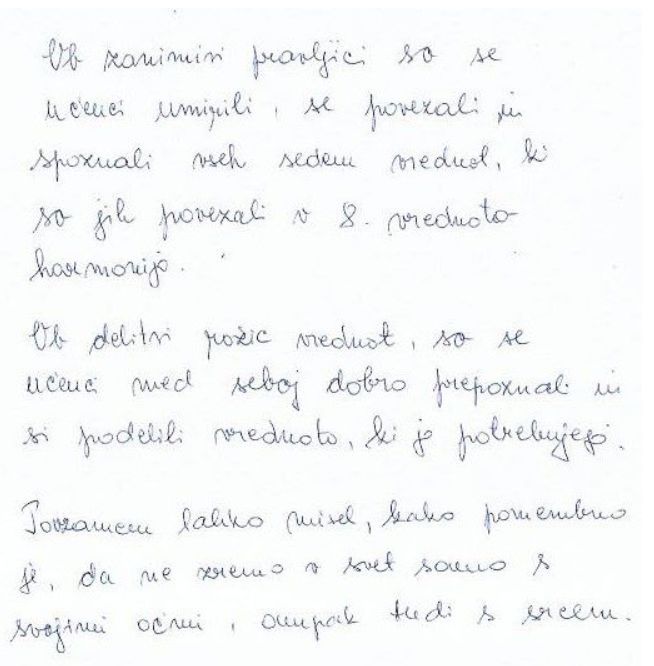 Ob zanimivi pravljici so se
učenci umirili, se povezali in
spoznali vseh sedem vrednot, ki
so jih povezali v 8. vrednoto
harmonijo.
Ob delitvi rožic vrednot, so se
učenci med seboj dobro prepoznali in
si podelili vrednoto, ki jo potrebujejo.
Povzamem lahko misel, kako pomembno
je, da ne zremo v svet samo s
svojimi očmi, ampak tudi s srcem.